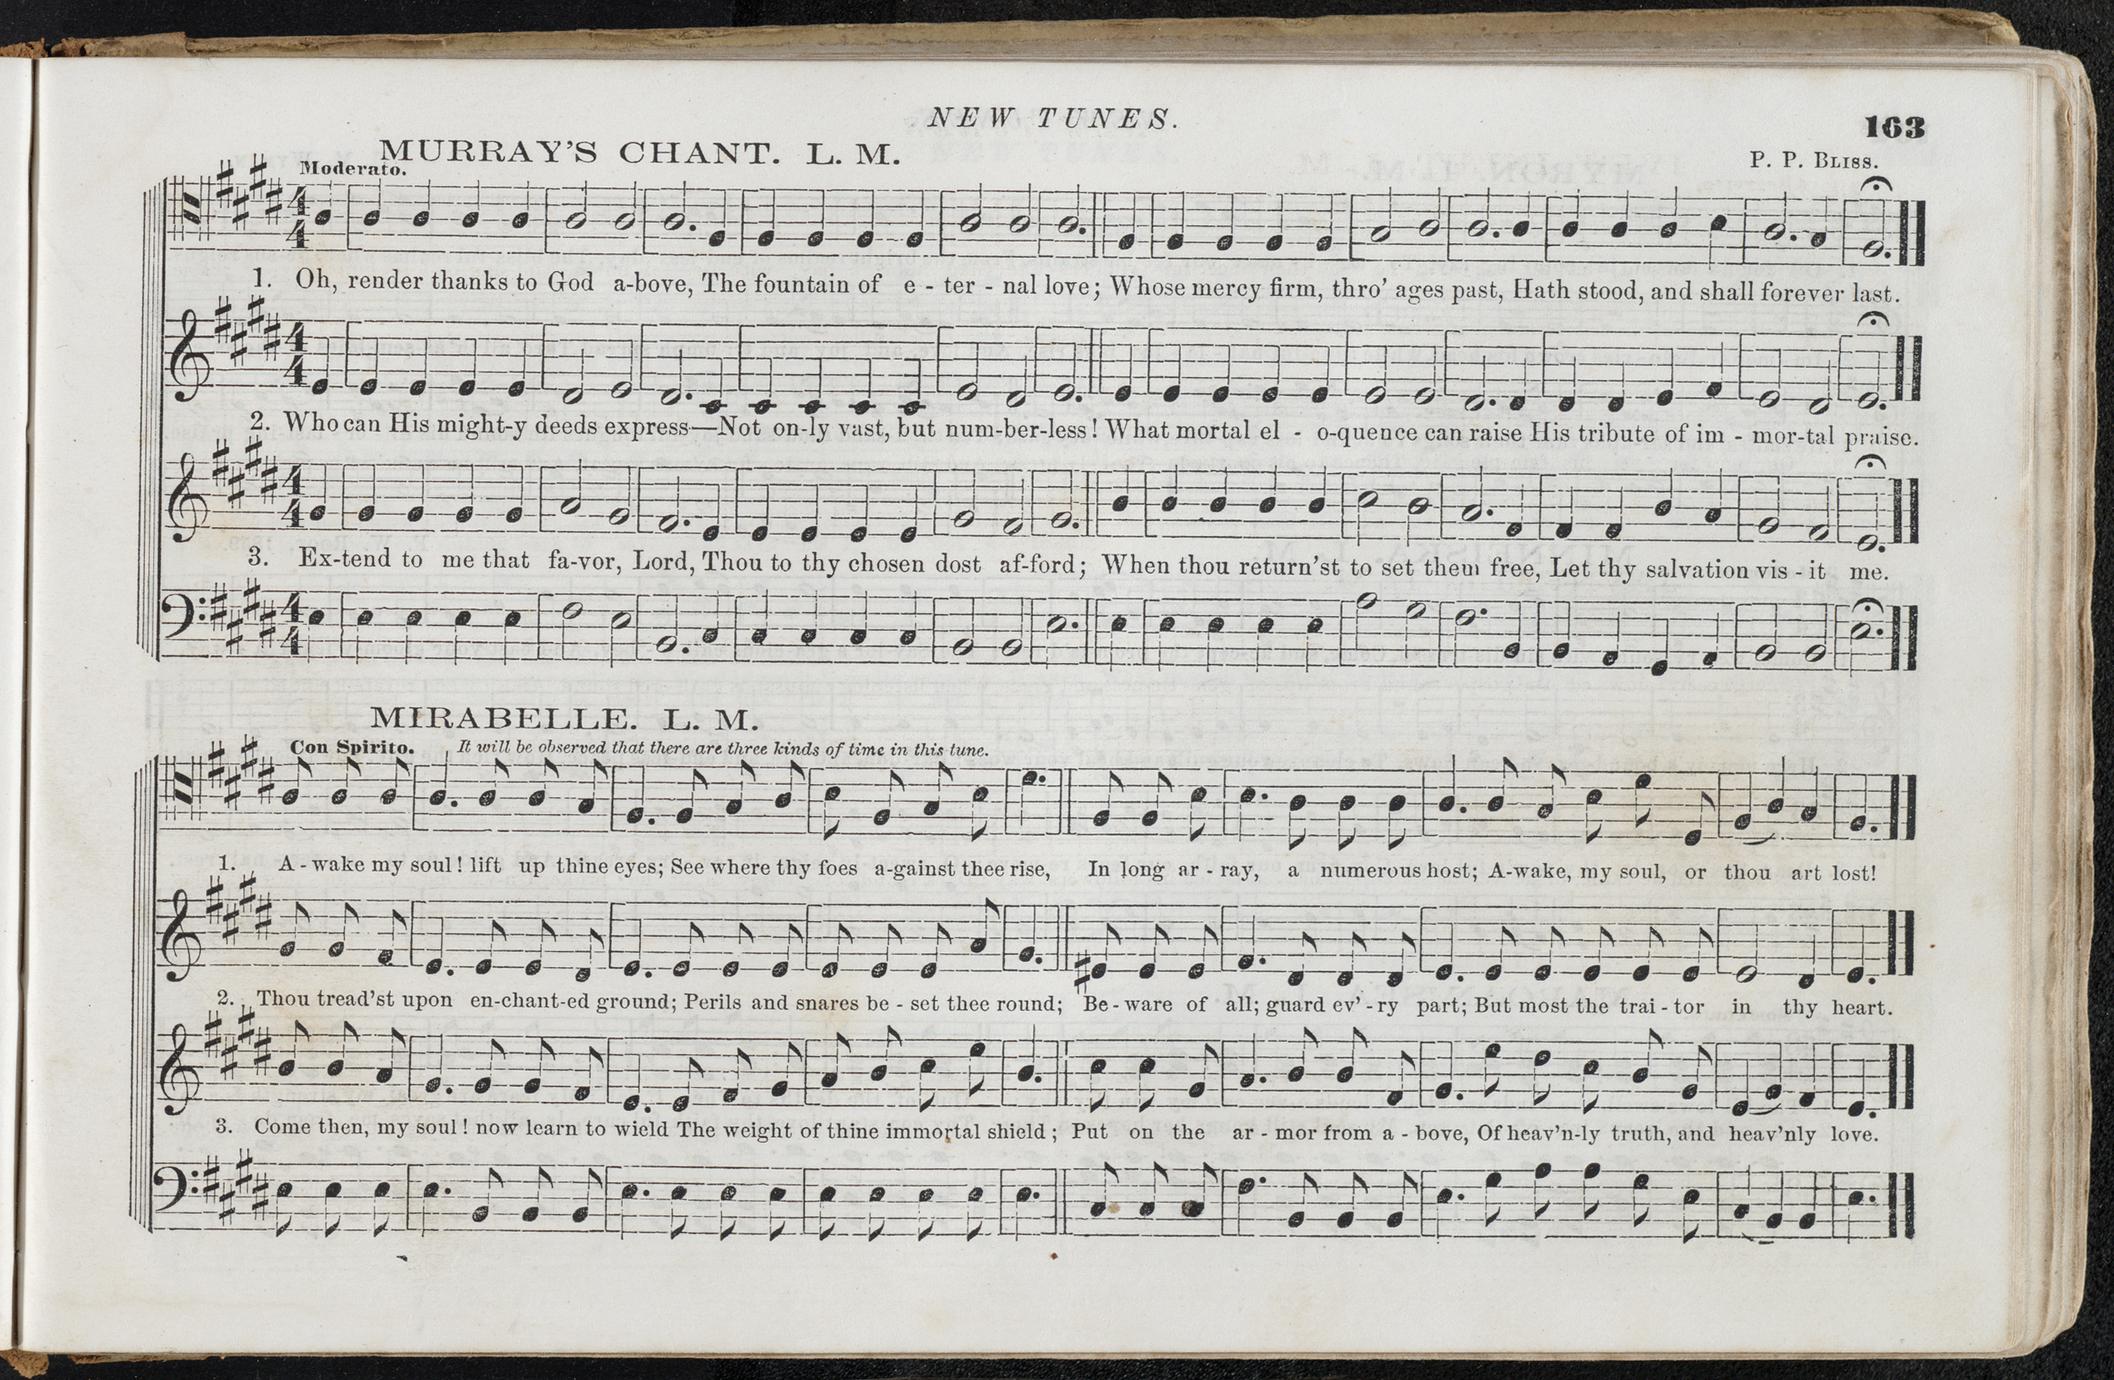 NEW TUNES.
163
MURRAY'S CHANT. L. M.
Moderato.
P. P. BLISS.
4
4
1. Oh, render thanks to God a-bove, The fountain of e - ter - nal love; Whose mercy firm, thro' ages past, Hath stood, and shall forever last.
4
4
2. Who can His might-y deeds express—Not on-ly vast, but num-ber-less! What mortal el - o-quence can raise His tribute of im - mor-tal praise.
4
4
3. Ex-tend to me that fa-vor, Lord, Thou to thy chosen dost af-ford; When thou return'st to set them free, Let thy salvation vis - it me.
4
4
MIRABELLE. L. M.
Con Spirito. It will be observed that there are three kinds of time in this tune.
1. A - wake my soul! lift up thine eyes; See where thy foes a-gainst thee rise, In long ar - ray, a numerous host; A-wake, my soul, or thou art lost!
2. Thou tread'st upon en-chant-ed ground; Perils and snares be - set thee round; Be - ware of all; guard ev' - ry part; But most the trai - tor in thy heart.
3. Come then, my soul! now learn to wield The weight of thine immortal shield; Put on the ar - mor from a - bove, Of heav'n-ly truth, and heav'nly love.